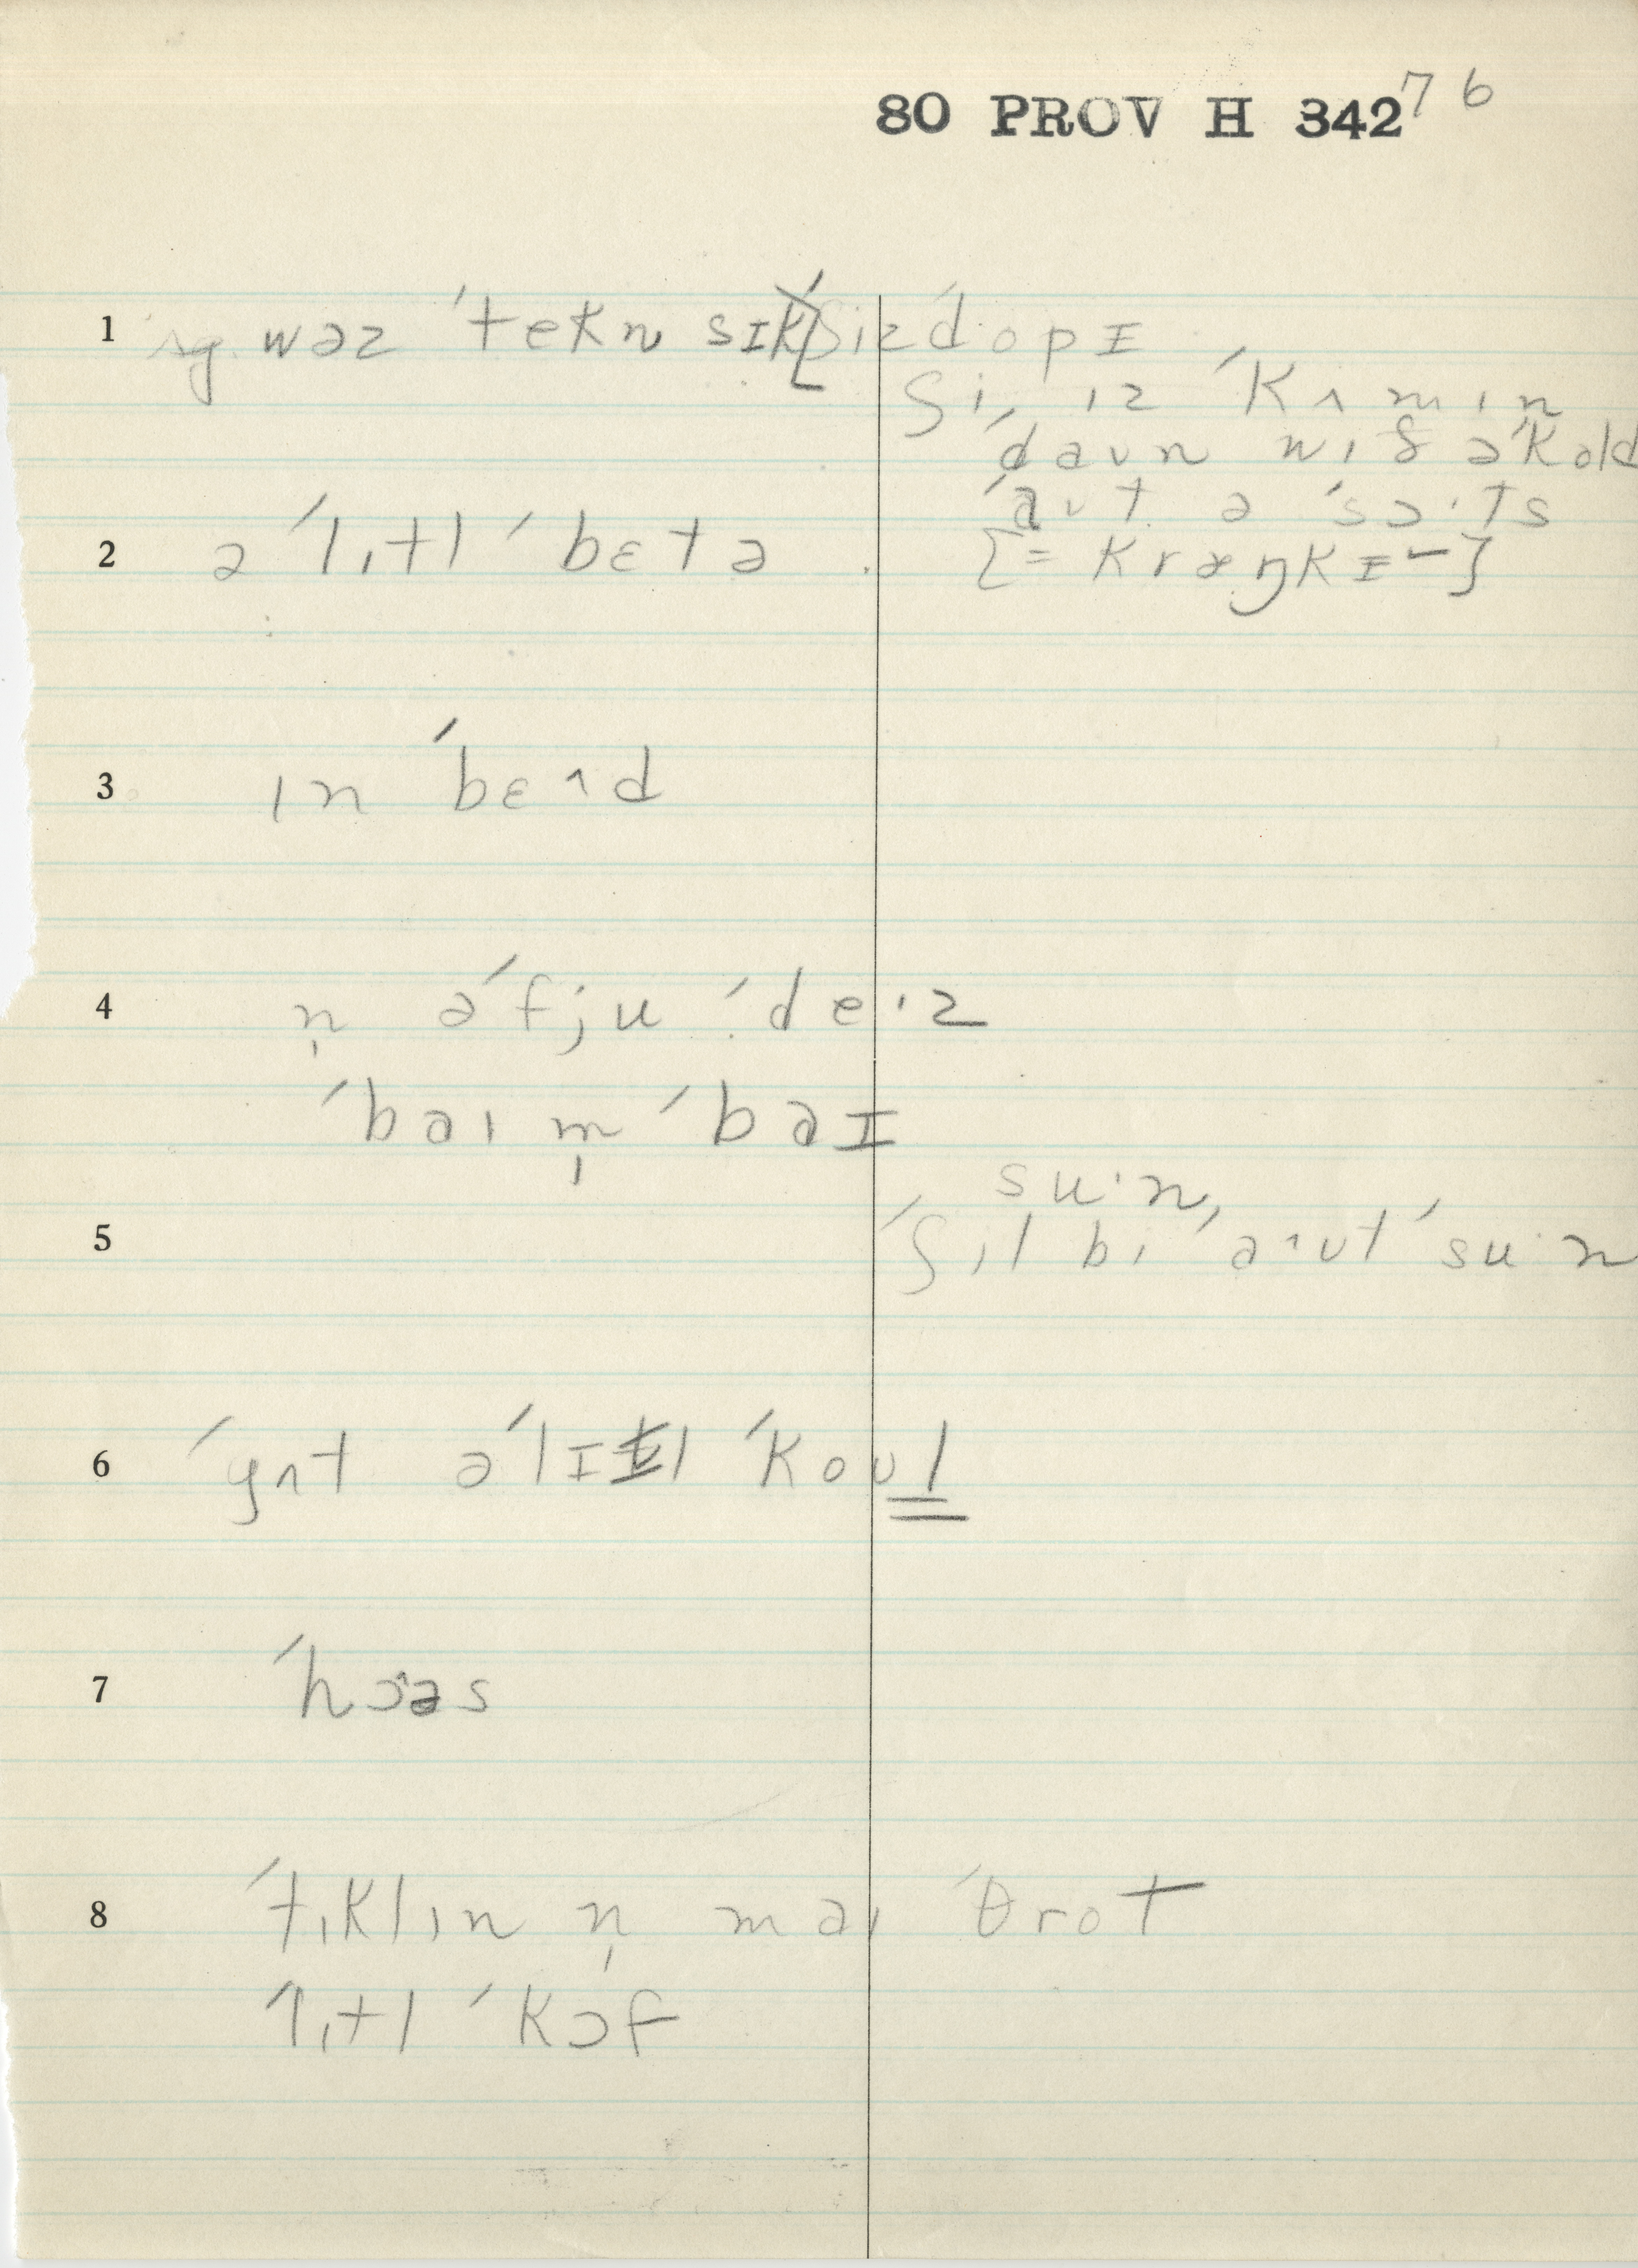 80 PROV H 342 76
1 wəz ˈtekn sɪk ʃiz ˈdopɪ
ʃi ɪz ˈkʌmɪn
ˈdaʊn wɪð ə ˈkold
ˈaʊt ə ˈsɔ·ts
2 ə ˈlɪtl ˈbɛtə
[= kræŋkɪ–]
3 ɪn ˈbɛʌd
4 n̩ ə ˈfju ˈde·z
ˈbaɪ m̩ ˈbaɪ
su·n,
5 ˈʃil bi ˈaʌʊt ˈsu·n
6 ˈgʌt ə ˈlɪtl ˈkoʊl
7 ˈhɔəs
8 ˈtɪklɪn n̩ maɪ ˈθrot
ˈlɪtl ˈkɔf